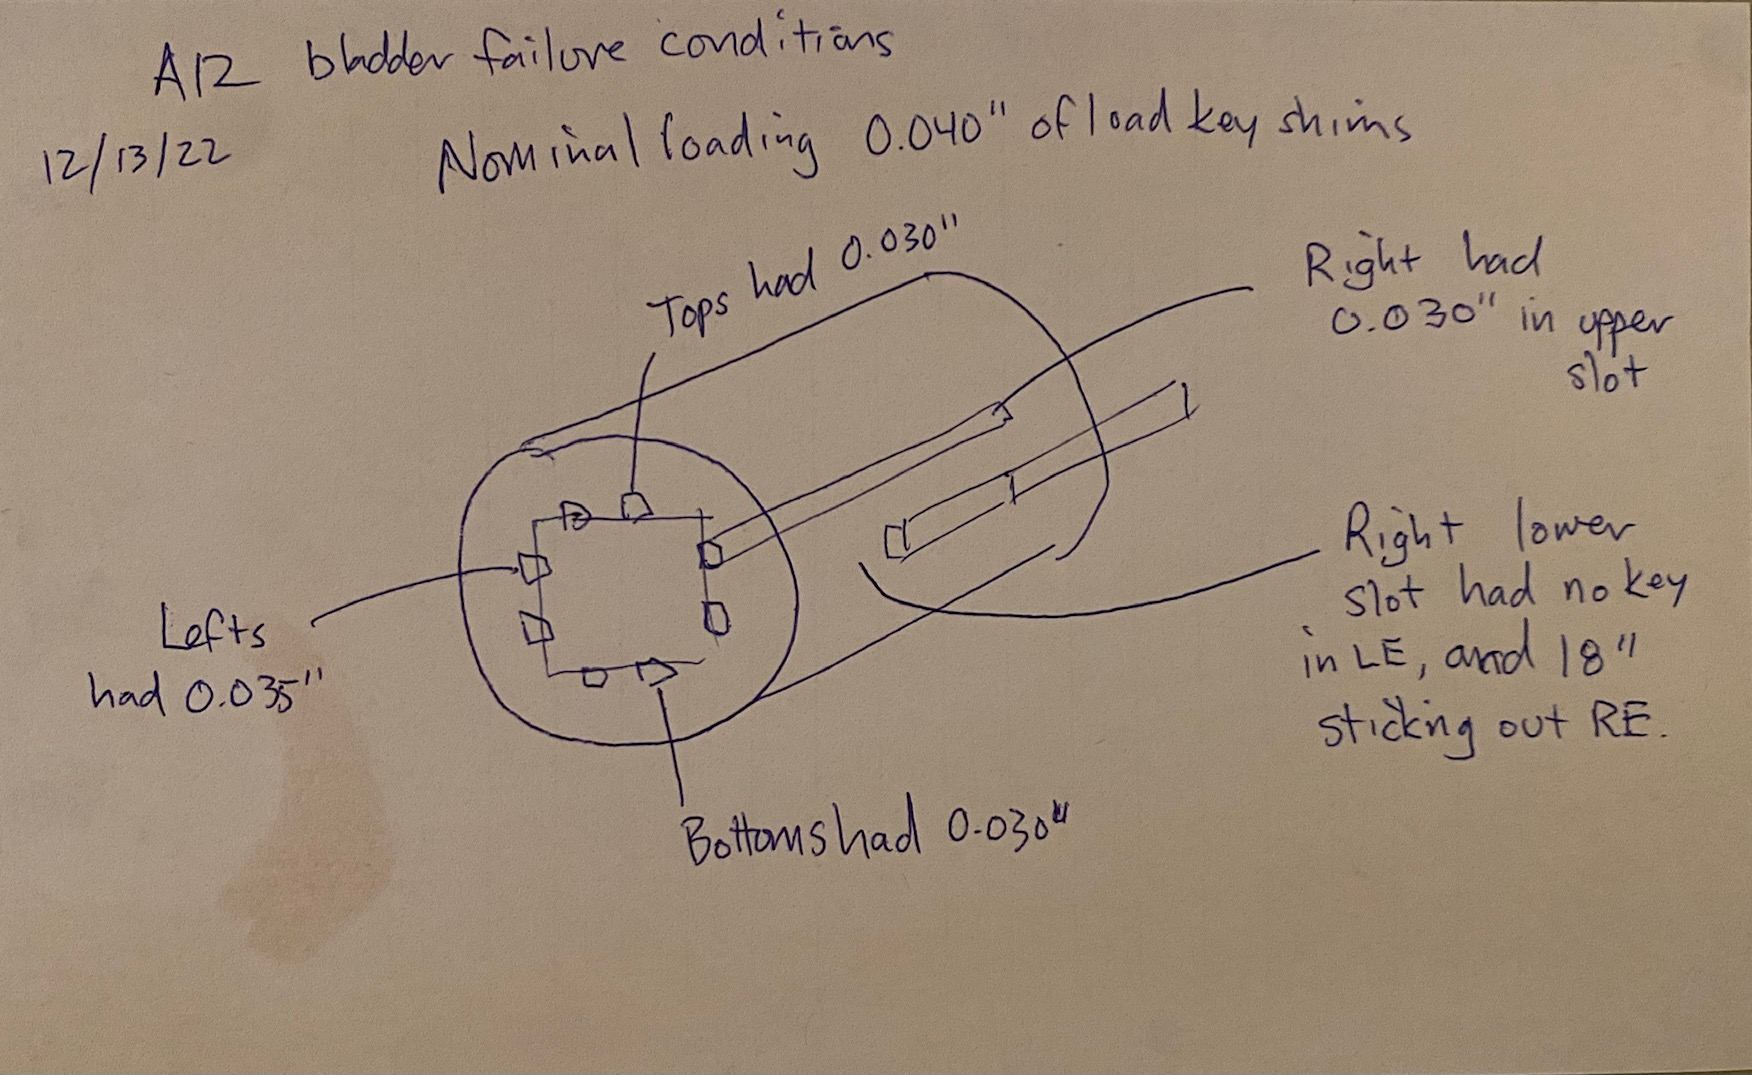 A12 bladder failure conditions
12/13/22
Nominal loading 0.040" of load key shims
Tops had 0.030"
Right had
0.030" in upper
slot
Lefts
had 0.035"
Right lower
slot had no key
in LE, and 18"
sticking out RE.
Bottoms had 0.030"